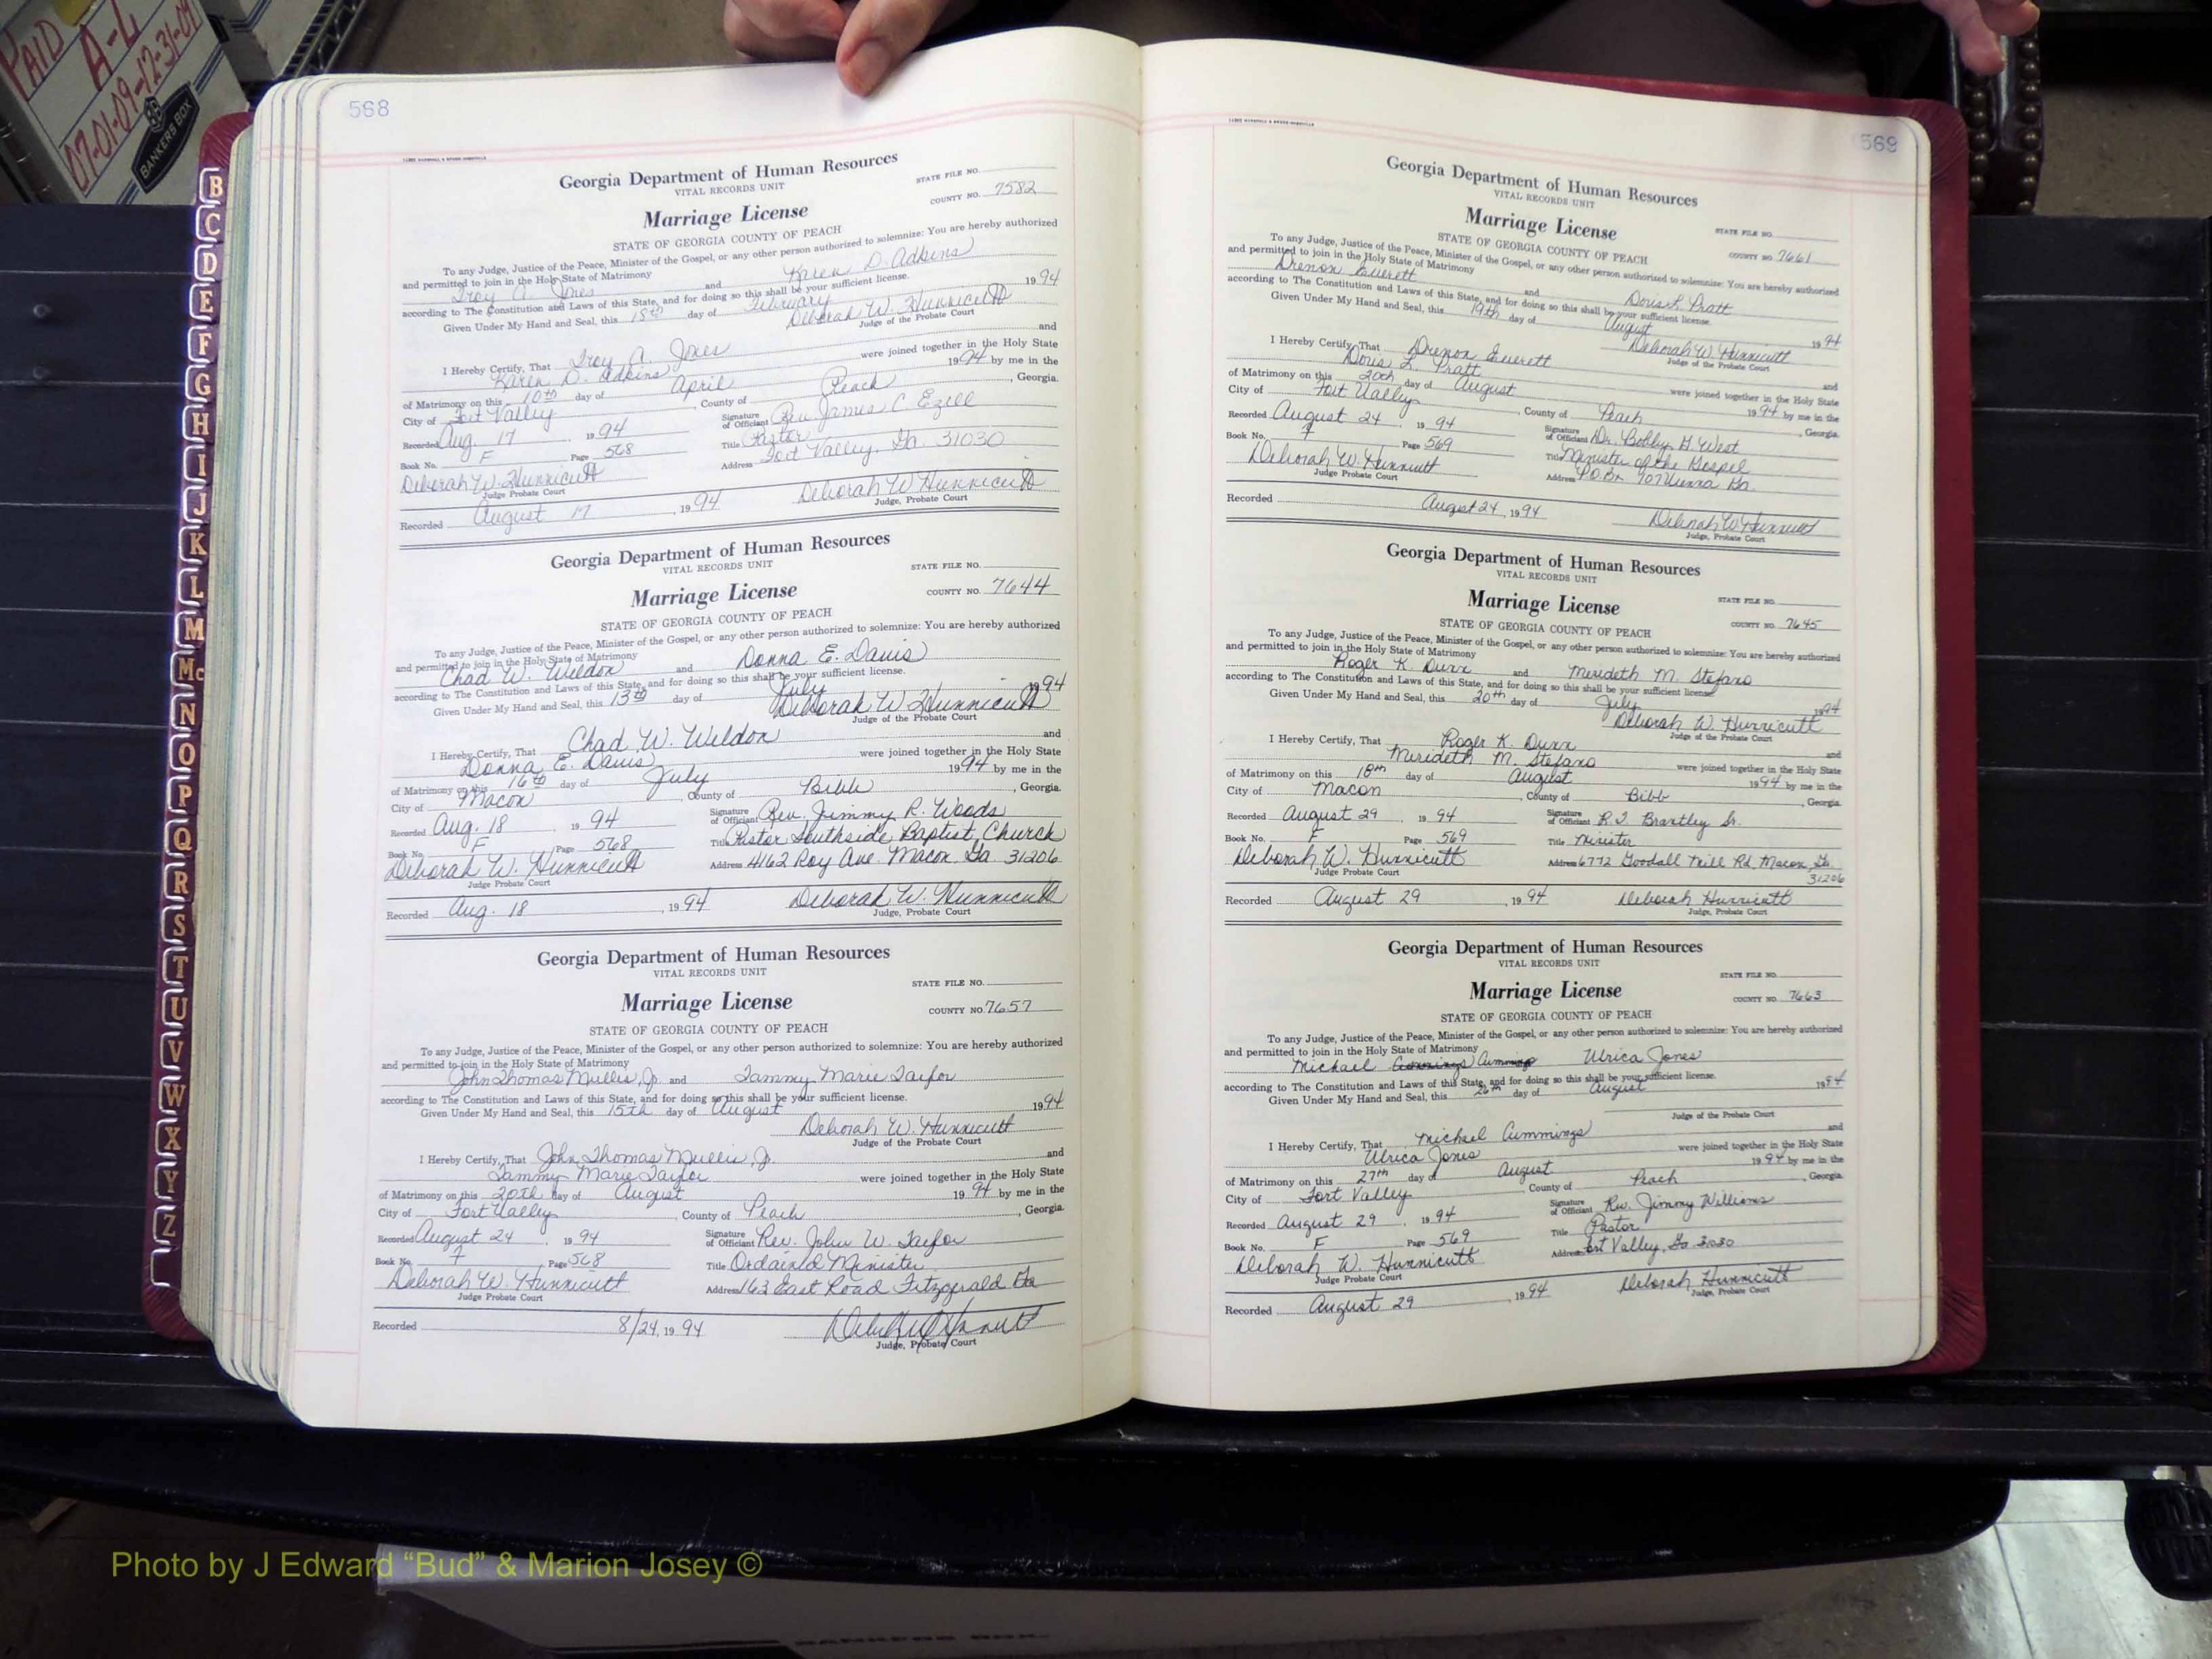 PAID
A-L
07-01-09-12-31-09
BANKERS BOX
B
C
D
E
F
G
H
I
J
K
L
M
Mc
N
O
P
Q
R
S
T
U
V
W
X
Y
Z
568
Georgia Department of Human Resources
VITAL RECORDS UNIT
STATE FILE NO.
COUNTY NO. 7582
Marriage License
STATE OF GEORGIA COUNTY OF PEACH
To any Judge, Justice of the Peace, Minister of the Gospel, or any other person authorized to solemnize: You are hereby authorized
and permitted to join in the Holy State of Matrimony
Troy A. Jones and Karen D. Adkins
according to The Constitution and Laws of this State, and for doing so this shall be your sufficient license.
Given Under My Hand and Seal, this 18th day of February 1994
Deborah W. Hunnicutt
Judge of the Probate Court
I Hereby Certify, That Troy A. Jones and
Karen D. Adkins were joined together in the Holy State
of Matrimony on this 10th day of April 1994 by me in the
City of Fort Valley, County of Peach, Georgia.
Recorded Aug. 17, 1994
Signature of Officiant Rev. James C Ezell
Book No. F Page 568
Title Pastor
Address Fort Valley, Ga. 31030
Deborah W. Hunnicutt
Judge Probate Court
Recorded August 17, 1994 Deborah W Hunnicutt
Judge, Probate Court
Georgia Department of Human Resources
VITAL RECORDS UNIT
STATE FILE NO.
Marriage License
COUNTY NO. 7644
STATE OF GEORGIA COUNTY OF PEACH
To any Judge, Justice of the Peace, Minister of the Gospel, or any other person authorized to solemnize: You are hereby authorized
and permitted to join in the Holy State of Matrimony
Chad W. Weldon and Donna E. Davis
according to The Constitution and Laws of this State, and for doing so this shall be your sufficient license.
Given Under My Hand and Seal, this 13th day of July 1994
Deborah W Hunnicutt
Judge of the Probate Court
I Hereby Certify, That Chad W. Weldon and
Donna E. Davis were joined together in the Holy State
of Matrimony on this 16th day of July 1994 by me in the
City of Macon, County of Bibb, Georgia.
Recorded Aug. 18, 1994
Signature of Officiant Rev. Jimmy R. Woods
Book No. F Page 568
Title Pastor Southside Baptist Church
Address 4162 Roy Ave Macon, Ga 31206
Deborah W. Hunnicutt
Judge Probate Court
Recorded Aug. 18, 1994 Deborah W. Hunnicutt
Judge, Probate Court
Georgia Department of Human Resources
VITAL RECORDS UNIT
STATE FILE NO.
Marriage License
COUNTY NO. 7657
STATE OF GEORGIA COUNTY OF PEACH
To any Judge, Justice of the Peace, Minister of the Gospel, or any other person authorized to solemnize: You are hereby authorized
and permitted to join in the Holy State of Matrimony
John Thomas Mullis, Jr. and Tammy Marie Taylor
according to The Constitution and Laws of this State, and for doing so this shall be your sufficient license.
Given Under My Hand and Seal, this 15th day of August 1994
Deborah W. Hunnicutt
Judge of the Probate Court
I Hereby Certify, That John Thomas Mullis, Jr. and
Tammy Marie Taylor were joined together in the Holy State
of Matrimony on this 20th day of August 1994 by me in the
City of Fort Valley, County of Peach, Georgia.
Recorded August 24, 1994
Signature of Officiant Rev. John W. Taylor
Book No. F Page 568
Title Ordained Minister
Address 163 East Road Fitzgerald Ga
Deborah W. Hunnicutt
Judge Probate Court
Recorded 8/24, 1994
Judge, Probate Court
569
Georgia Department of Human Resources
VITAL RECORDS UNIT
Marriage License
STATE FILE NO.
STATE OF GEORGIA COUNTY OF PEACH
COUNTY NO. 7661
To any Judge, Justice of the Peace, Minister of the Gospel, or any other person authorized to solemnize: You are hereby authorized
and permitted to join in the Holy State of Matrimony
Drenon Everett and Doris L. Pratt
according to The Constitution and Laws of this State, and for doing so this shall be your sufficient license.
Given Under My Hand and Seal, this 19th day of August 1994
Deborah W. Hunnicutt
Judge of the Probate Court
I Hereby Certify, That Drenon Everett and
Doris L. Pratt were joined together in the Holy State
of Matrimony on this 20th day of August 1994 by me in the
City of Fort Valley, County of Peach, Georgia.
Recorded August 24, 1994
Signature of Officiant Dr. Bobby G West
Book No. F Page 569
Title Minister of the Gospel
Address P.O. Bx 707 Vienna Ga.
Deborah W. Hunnicutt
Judge Probate Court
Recorded August 24, 1994 Deborah W Hunnicutt
Judge, Probate Court
Georgia Department of Human Resources
VITAL RECORDS UNIT
Marriage License
STATE FILE NO.
STATE OF GEORGIA COUNTY OF PEACH
COUNTY NO. 7645
To any Judge, Justice of the Peace, Minister of the Gospel, or any other person authorized to solemnize: You are hereby authorized
and permitted to join in the Holy State of Matrimony
Roger K. Dunn and Merideth M. Stefano
according to The Constitution and Laws of this State, and for doing so this shall be your sufficient license.
Given Under My Hand and Seal, this 20th day of July 1994
Deborah W. Hunnicutt
Judge of the Probate Court
I Hereby Certify, That Roger K. Dunn and
Merideth M. Stefano were joined together in the Holy State
of Matrimony on this 18th day of August 1994 by me in the
City of Macon, County of Bibb, Georgia.
Recorded August 29, 1994
Signature of Officiant R.J. Brantley Sr.
Book No. F Page 569
Title Minister
Address 6772 Goodall Mill Rd Macon, Ga.
31206
Deborah W. Hunnicutt
Judge Probate Court
Recorded August 29, 1994 Deborah Hunnicutt
Judge, Probate Court
Georgia Department of Human Resources
VITAL RECORDS UNIT
STATE FILE NO.
Marriage License
COUNTY NO. 7663
STATE OF GEORGIA COUNTY OF PEACH
To any Judge, Justice of the Peace, Minister of the Gospel, or any other person authorized to solemnize: You are hereby authorized
and permitted to join in the Holy State of Matrimony
Michael Cummings Ulrica Jones
according to The Constitution and Laws of this State, and for doing so this shall be your sufficient license.
Given Under My Hand and Seal, this 26th day of August 1994
Judge of the Probate Court
I Hereby Certify, That Michael Cummings and
Ulrica Jones were joined together in the Holy State
of Matrimony on this 27th day of August 1994 by me in the
City of Fort Valley, County of Peach, Georgia.
Recorded August 29, 1994
Signature of Officiant Rev. Jimmy Williams
Book No. F Page 569
Title Pastor
Address Fort Valley, Ga 31030
Deborah W. Hunnicutt
Judge Probate Court
Recorded August 29, 1994 Deborah Hunnicutt
Judge, Probate Court
Photo by J Edward “Bud” & Marion Josey ©